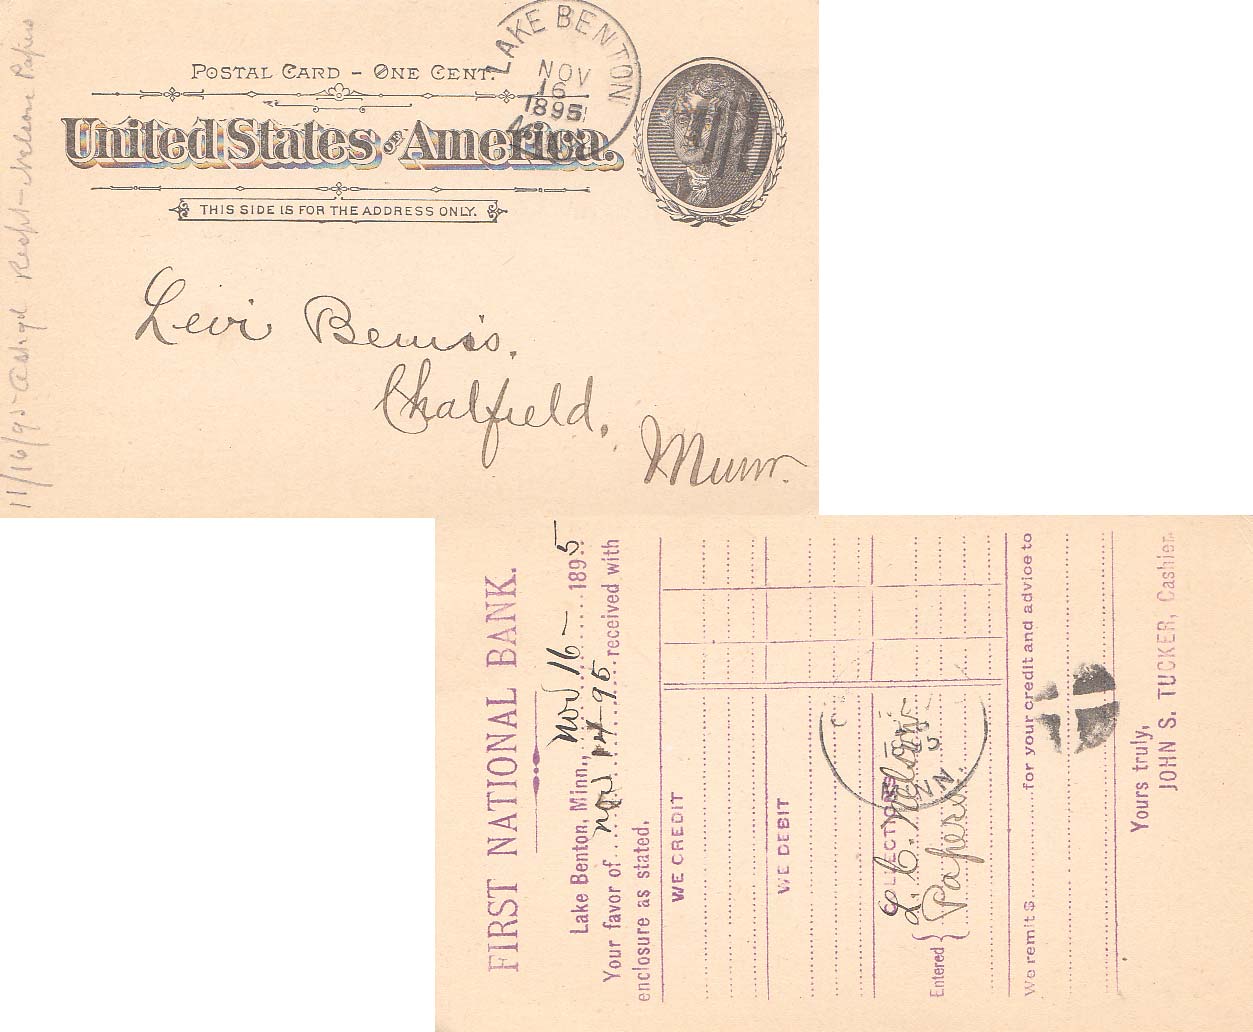 POSTAL CARD - ONE CENT.
United States OF America.
THIS SIDE IS FOR THE ADDRESS ONLY.
LAKE BENTON
NOV
16
1895
Levi Bemis.
Chatfield,
Minn.
11/16/95 - Ackgd Recpt - Nelson Papers
FIRST NATIONAL BANK.
Lake Benton, Minn., Nov 16 - 1895
Your favor of Nov 14 - 95 received with
enclosure as stated.
WE CREDIT
WE DEBIT
COLLECTIONS
Entered { L. C. Nelson
Papers.
NN.
We remit $ for your credit and advice to
Yours truly,
JOHN S. TUCKER, Cashier.